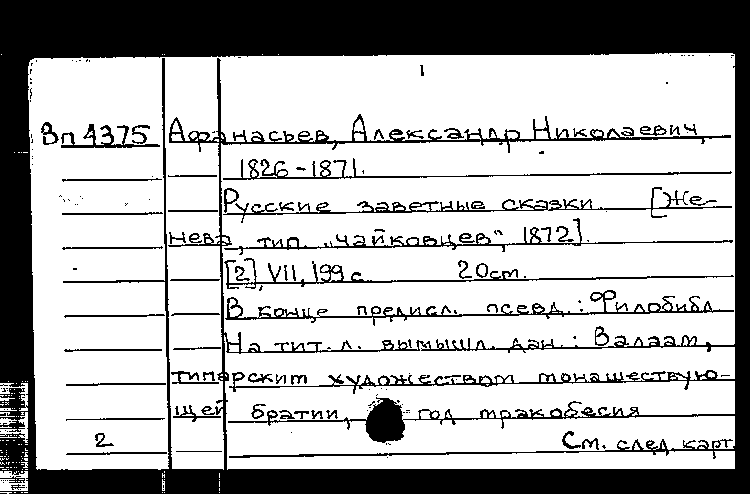 1
Вп 4375 Афанасьев, Александр Николаевич,
1826-1871.
Русские заветные сказки. [Же-
нева, тип. „чайковцев“, 1872].
[2], VII, 199 с. 20 см.
В конце предисл. псевд.: Филобибл
На тит. л. вымышл. дан.: Валаам,
типарским художеством монашествую-
щей братии, год мракобесия
2 См. след. карт.